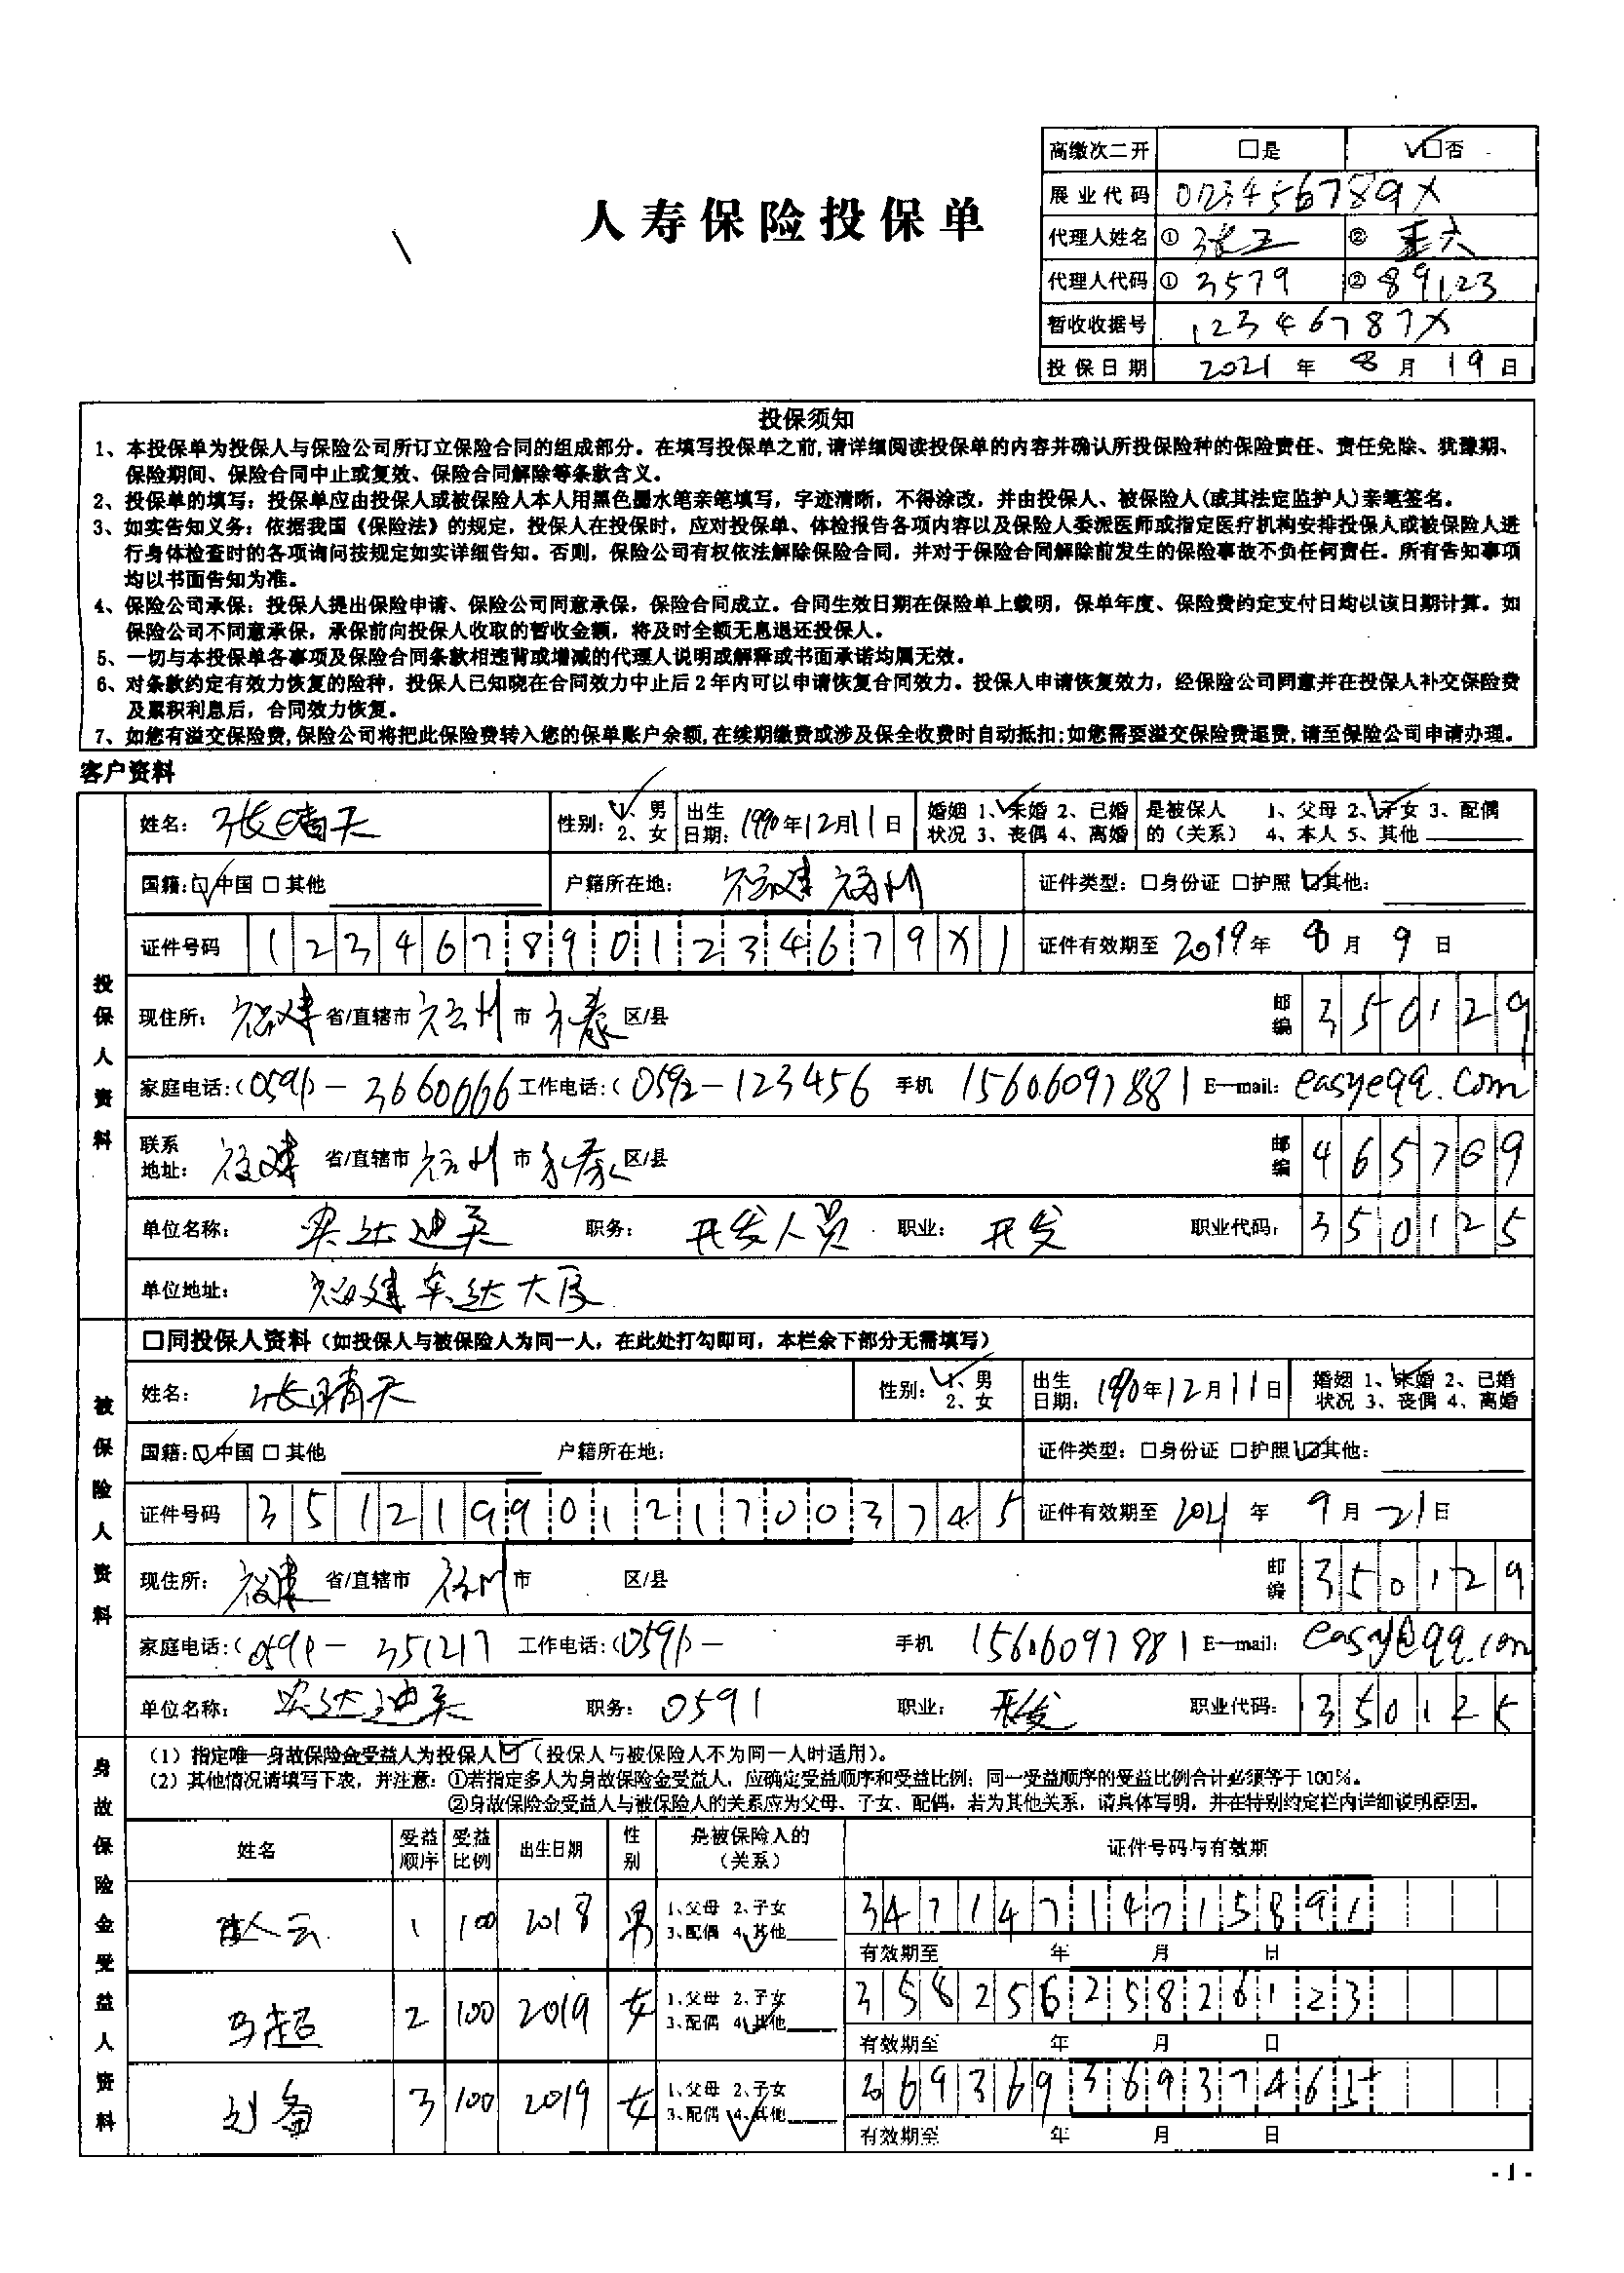 高缴次二开 □是 √□否
人寿保险投保单
展业代码 0123456789X
代理人姓名 ① 张三 ② 王六
代理人代码 ① 3579 ② 89123
暂收收据号 12346787X
投保日期 2021 年 8 月 19 日
投保须知
1、本投保单为投保人与保险公司所订立保险合同的组成部分。在填写投保单之前,请详细阅读投保单的内容并确认所投保险种的保险责任、责任免除、犹豫期、
保险期间、保险合同中止或复效、保险合同解除等条款含义。
2、投保单的填写：投保单应由投保人或被保险人本人用黑色墨水笔亲笔填写，字迹清晰，不得涂改，并由投保人、被保险人(或其法定监护人)亲笔签名。
3、如实告知义务：依据我国《保险法》的规定，投保人在投保时，应对投保单、体检报告各项内容以及保险人委派医师或指定医疗机构安排投保人或被保险人进
行身体检查时的各项询问按规定如实详细告知。否则，保险公司有权依法解除保险合同，并对于保险合同解除前发生的保险事故不负任何责任。所有告知事项
均以书面告知为准。
4、保险公司承保：投保人提出保险申请、保险公司同意承保，保险合同成立。合同生效日期在保险单上载明，保单年度、保险费约定支付日均以该日期计算。如
保险公司不同意承保，承保前向投保人收取的暂收金额，将及时全额无息退还投保人。
5、一切与本投保单各事项及保险合同条款相违背或增减的代理人说明或解释或书面承诺均属无效。
6、对条款约定有效力恢复的险种，投保人已知晓在合同效力中止后2年内可以申请恢复合同效力。投保人申请恢复效力，经保险公司同意并在投保人补交保险费
及累积利息后，合同效力恢复。
7、如您有溢交保险费,保险公司将把此保险费转入您的保单账户余额,在续期缴费或涉及保全收费时自动抵扣;如您需要溢交保险费退费,请至保险公司申请办理。
客户资料
投保人资料
姓名： 张晴天 性别： √1、男 2、女 出生日期： 1990年12月11日 婚姻状况 1、√未婚 2、已婚 3、丧偶 4、离婚 是被保人的（关系） 1、父母 2、√子女 3、配偶 4、本人 5、其他
国籍：☑中国 □其他 户籍所在地： 福建福州 证件类型：□身份证 □护照 ☑其他：
证件号码 1234678901234679X1 证件有效期至 2019年 8 月 9 日
现住所： 福建 省/直辖市 福州 市 永泰 区/县 邮编 350129
家庭电话:(0591)－3660666 工作电话:(0592－123456 手机 15606097881 E－mail: easyeqq.com
联系地址： 福建 省/直辖市 福州 市 永泰 区/县 邮编 465769
单位名称： 实达迪美 职务： 开发人员 职业： 开发 职业代码： 350125
单位地址： 福建实达大厦
被保险人资料
□同投保人资料（如投保人与被保险人为同一人，在此处打勾即可，本栏余下部分无需填写）
姓名： 张晴天 性别： √1、男 2、女 出生日期： 1990年12月11日 婚姻状况 1、√未婚 2、已婚 3、丧偶 4、离婚
国籍：☑中国 □其他 户籍所在地： 证件类型：□身份证 □护照 ☑其他：
证件号码 351219901217003745 证件有效期至 2021 年 9 月 21 日
现住所： 福建 省/直辖市 福州 市 区/县 邮编 350129
家庭电话:(0591－351217 工作电话:(0591)－ 手机 15606097881 E－mail: easy@qq.com
单位名称： 实达迪美 职务： 0591 职业： 开发 职业代码： 350125
身故保险金受益人资料
（1）指定唯一身故保险金受益人为投保人☑（投保人与被保险人不为同一人时适用）。
（2）其他情况请填写下表，并注意：①若指定多人为身故保险金受益人，应确定受益顺序和受益比例；同一受益顺序的受益比例合计必须等于100%。
②身故保险金受益人与被保险人的关系应为父母、子女、配偶，若为其他关系，请具体写明，并在特别约定栏内详细说明原因。
姓名 受益顺序 受益比例 出生日期 性别 是被保险人的（关系） 证件号码与有效期
1 100 2018 男 1、父母 2、子女 3、配偶 4、√其他 34714714715891
有效期至 年 月 日
马超 2 100 2019 女 1、父母 2、子女 3、配偶 4、√其他 35825625826123
有效期至 年 月 日
刘备 3 100 2019 女 1、父母 2、子女 3、配偶 4、√其他 36936936937465
有效期至 年 月 日
- 1 -